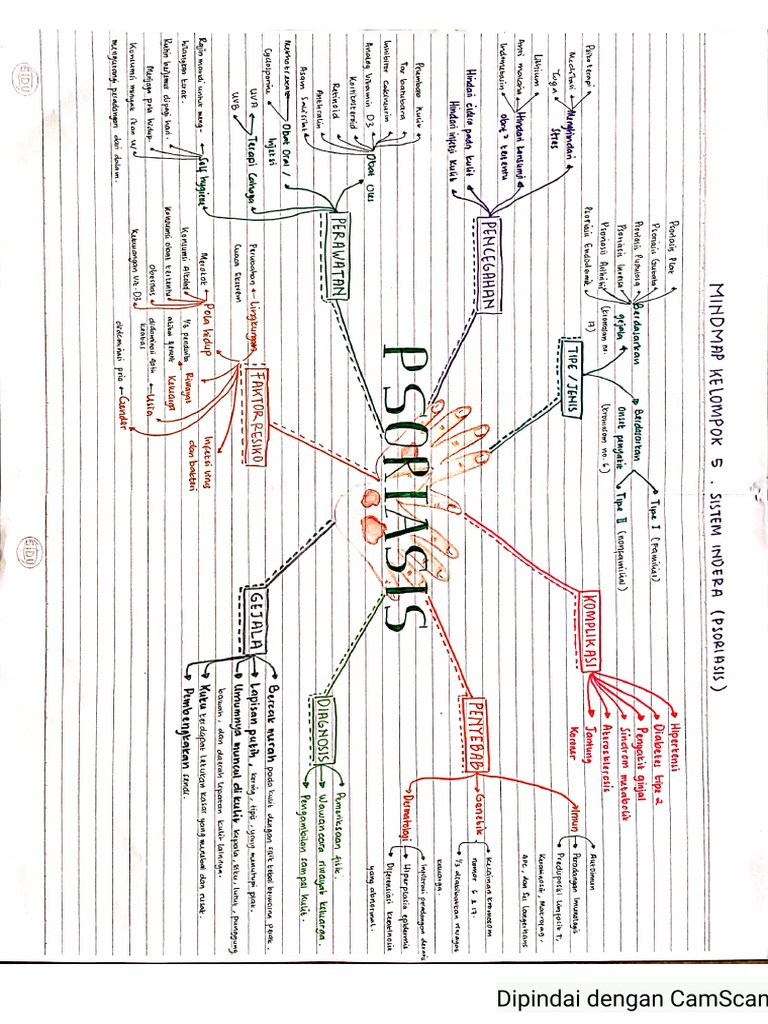 MINDMAP KELOMPOK 5 . SISTEM INDERA (PSORIASIS)
PSORIASIS
PENCEGAHAN
Menghindari
Stres
Psikoterapi
Meditasi
Yoga
Hindari konsumsi
obat² tertentu
Lithium
Anti malaria
Indometasin
Hindari cidera pada kulit
Hindari infeksi kulit
TIPE / JENIS
Berdasarkan
gejala
Psoriasis Plak
Psoriasis Guttata
Psoriasis Pustulosa
Psoriasis Inversa
Psoriasis Arthritis
Psoriasis Eritrodermik
(kromosom no.
17)
Berdasarkan
Onset penyakit
(kromosom no. 6)
Tipe I (Familial)
Tipe II (nonfamilial)
KOMPLIKASI
Hipertensi
Diabetes tipe 2
Penyakit ginjal
Sindrom metabolik
Aterosklerosis
Jantung
Koroner
PENYEBAB
Imun
Autoimun
Peradangan Imunologis
Predisposisi limfosit T,
Keratinosit, Makrofag,
APC, dan Sel Langerhans
Genetik
Kelainan kromosom
nomor 6 & 17.
1/3 disebabkan riwayat
keluarga.
Dermatologi
Inflamasi peradangan dermis
Hiperplasia epidermis
Diferensiasi keratinosit
yang abnormal.
DIAGNOSIS
Pemeriksaan fisik.
Wawancara riwayat keluarga.
Pengambilan sampel kulit.
GEJALA
Bercak merah pada kulit dengan sisik tebal berwarna perak.
Lapisan putih, kering, tipis, yang menutupi plak.
Umumnya muncul di kulit kepala, siku, lutut, punggung
bawah, dan daerah lipatan kulit lainnya.
Kuku terdapat lekukan kasar yang menebal dan rusak.
Pembengkakan sendi.
FAKTOR RESIKO
Lingkungan
Perubahan
Cuaca Ekstrem
Pola hidup
Merokok
Konsumsi Alkohol
Konsumsi obat tertentu
Obesitas
Kekurangan vit. D3
Riwayat
Keluarga
1/3 penderita
Usia
Gender
didominasi pria
Infeksi virus
dan bakteri
PERAWATAN
Obat Oles
Pelembab Kulit
Tar batubara
Inhibitor Calcineurin
Analog Vitamin D3
Kortikosteroid
Retinoid
Anthralin
Asam Salisilat
Obat Oral /
Injeksi
Methotrexate
Cyclosporine
Terapi Cahaya
UVA
UVB
Self hygiene
Rajin mandi untuk meng-
hilangkan kerak.
Rutin berjemur di pagi hari.
Menjaga pola hidup.
Konsumsi minyak ikan u/
mengurangi peradangan dari dalam.
SIDU
SIDU
Dipindai dengan CamScan